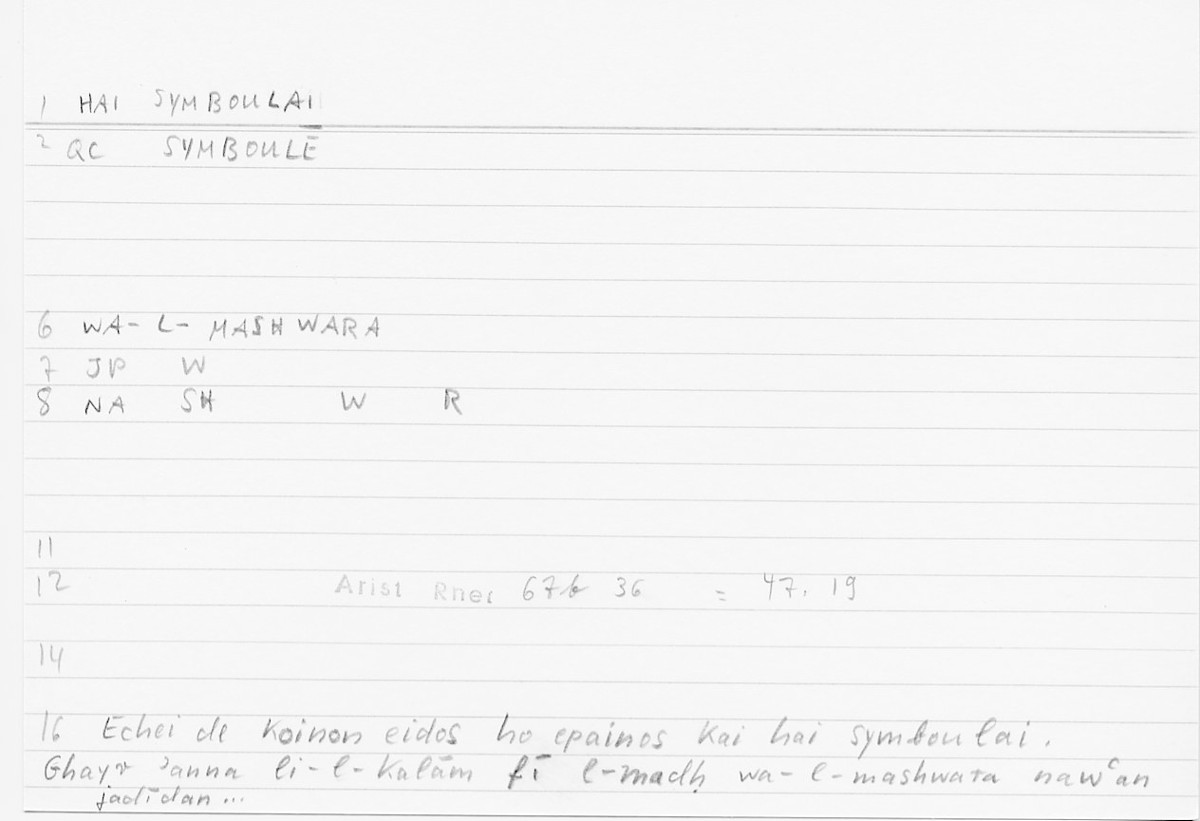 1 HAI SYMBOULAI
2 QC SYMBOULĒ
6 WA- L- MASHWARA
7 JP W
8 NA SH W R
11
12 Arist Rhet 67b 36 = 47. 19
14
16 Echei de koinon eidos ho epainos kai hai symboulai.
Ghayr ʾanna li-l-Kalām fī l-madḥ wa-l-mashwara nawʿan
jadīdan ...